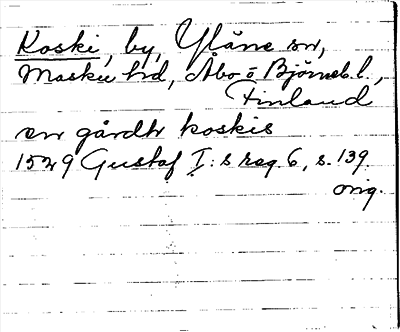 Koski, by, Yläne sn,
Masku hd, Åbo o. Björneb. l.,
Finland
en gårdh koskis
1529 Gustaf I:s reg. 6, s. 139.
orig.